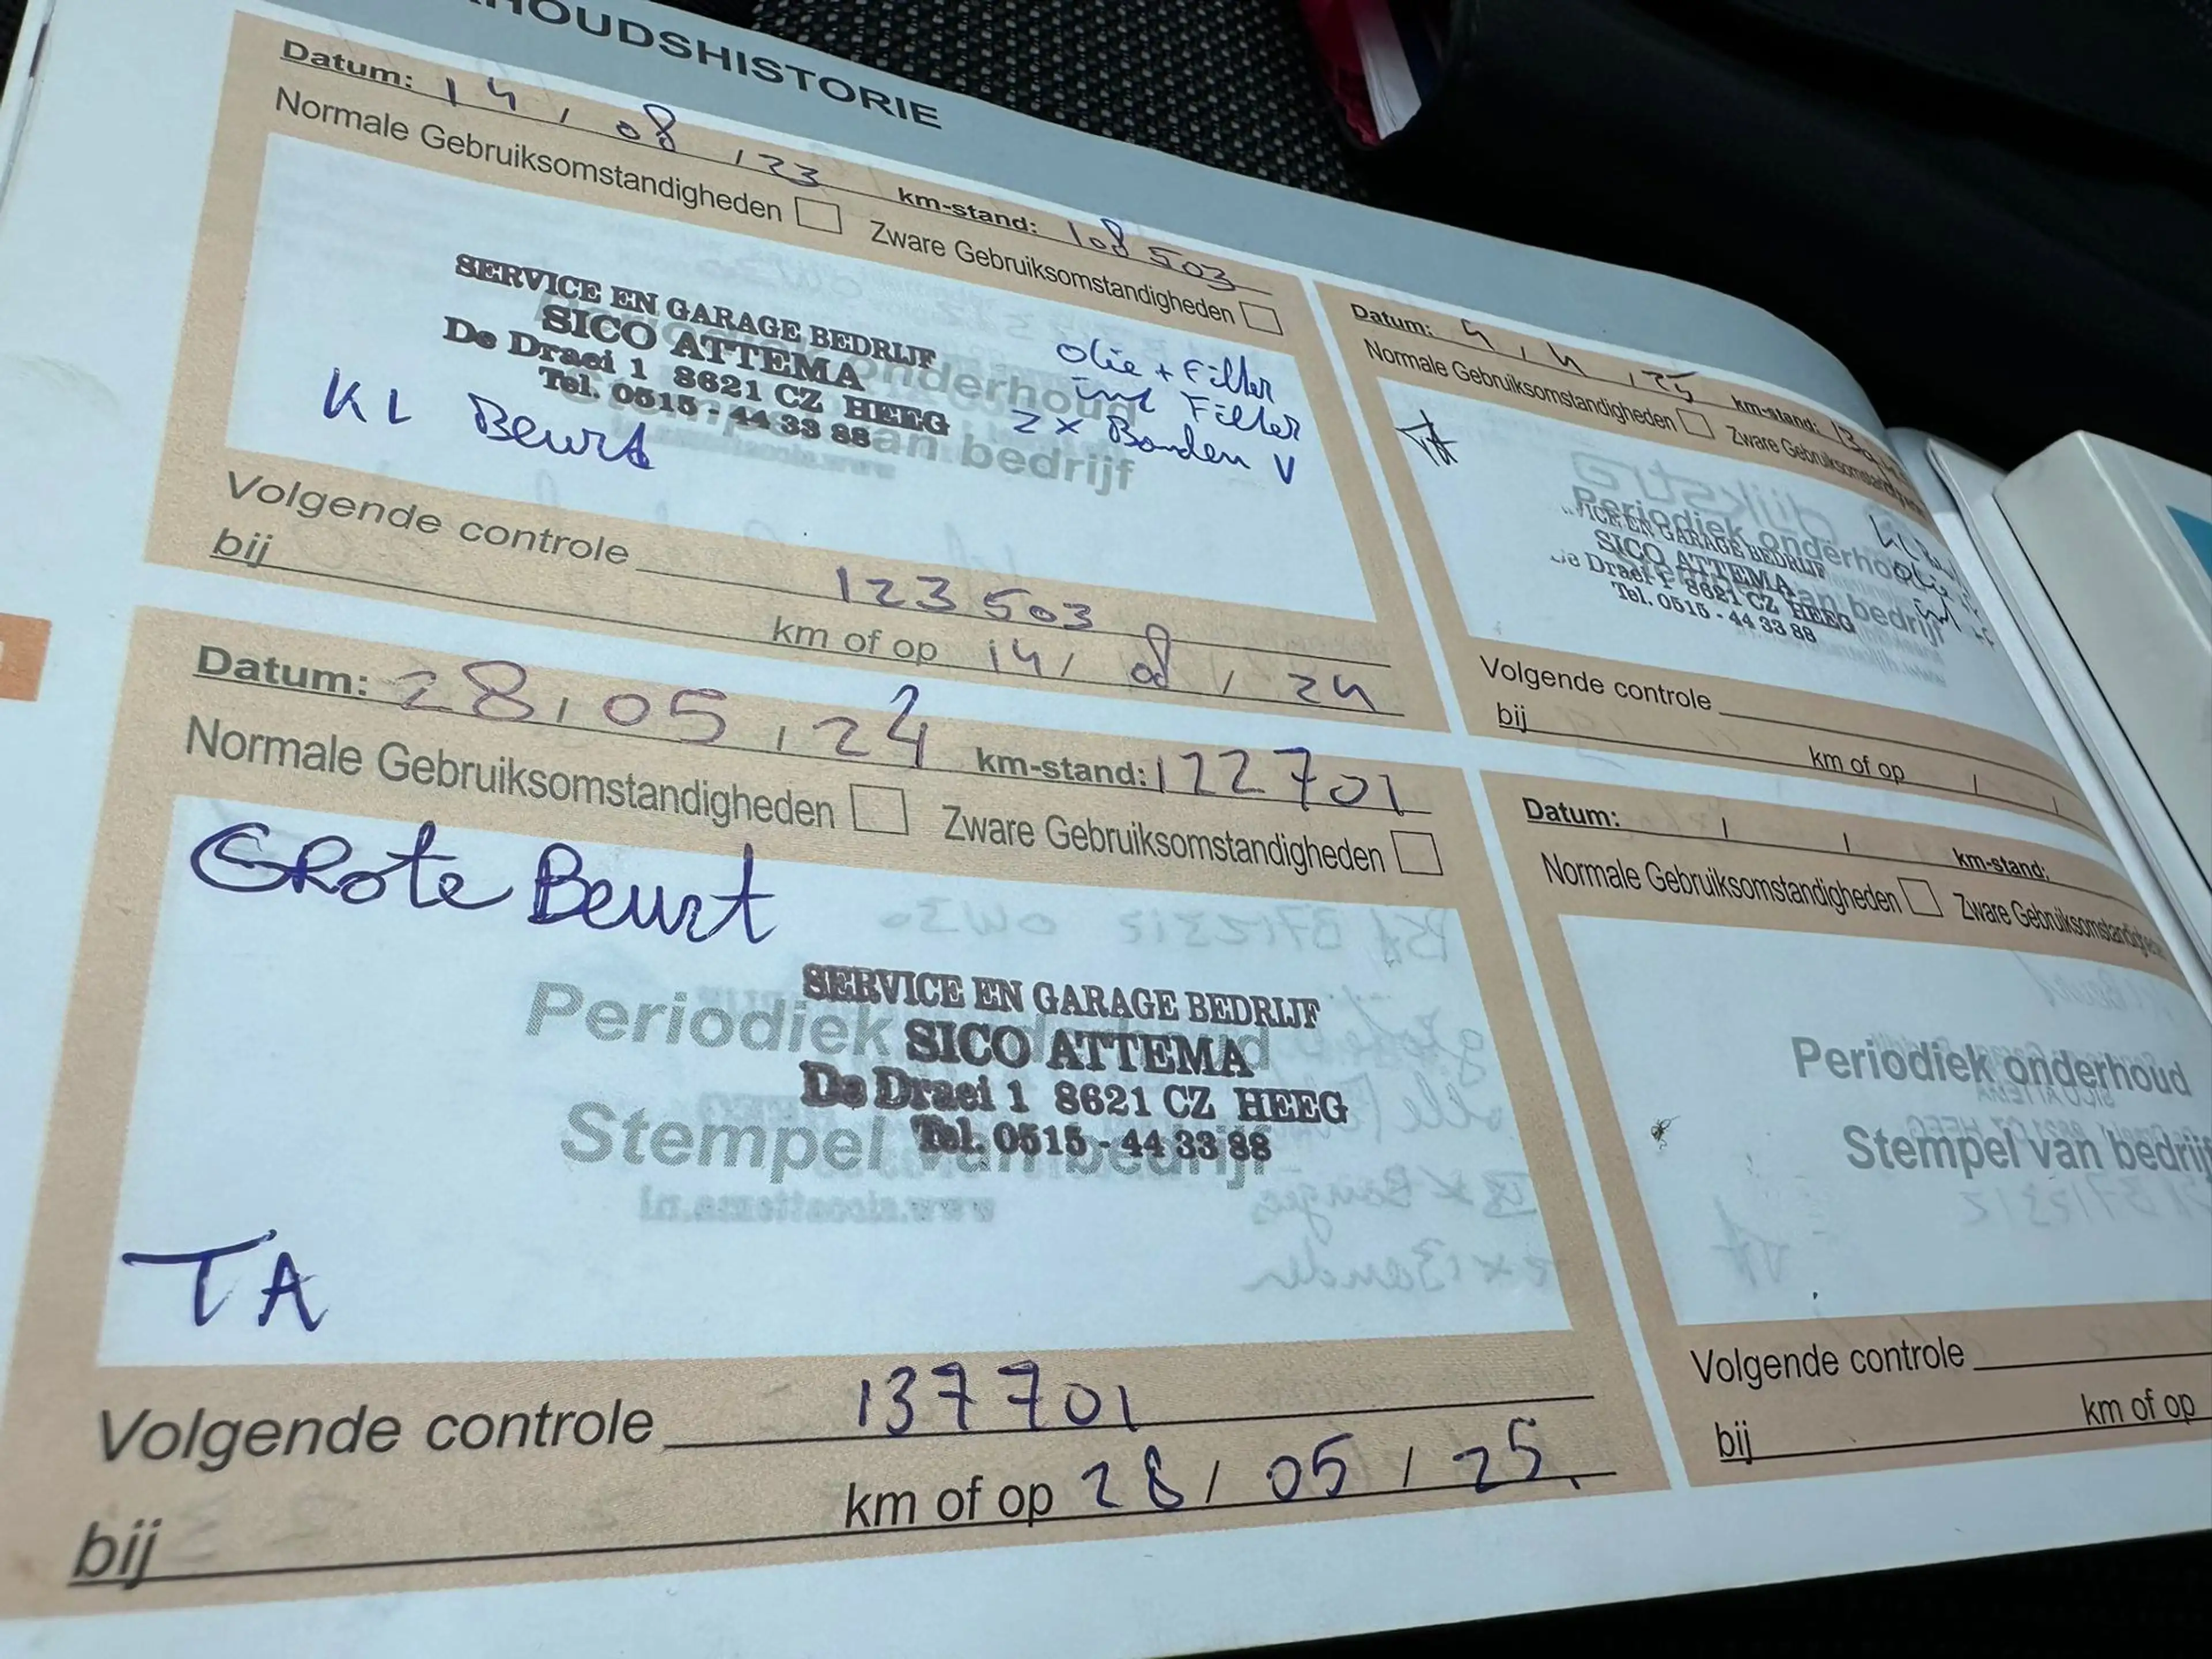 HOUDSHISTORIE
Datum: 14 / 08 / 23 km-stand: 108 503
Normale Gebruiksomstandigheden Zware Gebruiksomstandigheden
SERVICE EN GARAGE BEDRIJF
SICO ATTEMA
De Draei 1 8621 CZ HEEG
Tel. 0515 - 44 33 88
KL Beurt
olie + Filter
int Filter
2 x Banden V
onderhoud
van bedrijf
Volgende controle 123 503
bij km of op 14 / 08 / 24
Datum: 28 / 05 / 24 km-stand: 122 701
Normale Gebruiksomstandigheden Zware Gebruiksomstandigheden
GRote Beurt
Periodiek onderhoud
Stempel van bedrijf
SERVICE EN GARAGE BEDRIJF
SICO ATTEMA
De Draei 1 8621 CZ HEEG
Tel. 0515 - 44 33 88
TA
Volgende controle 137 701
bij km of op 28 / 05 / 25.
Datum: 4 / 4 / 25 km-stand:
Normale Gebruiksomstandigheden Zware Gebruiksomstandigheden
TA
Periodiek onderhoud
van bedrijf
VICE EN GARAGE BEDRIJF
SICO ATTEMA
De Draei 1 8621 CZ HEEG
Tel. 0515 - 44 33 88
olie
Volgende controle
bij km of op / /
Datum: / / km-stand:
Normale Gebruiksomstandigheden Zware Gebruiksomstandighede
Periodiek onderhoud
Stempel van bedrij
Volgende controle
bij km of op